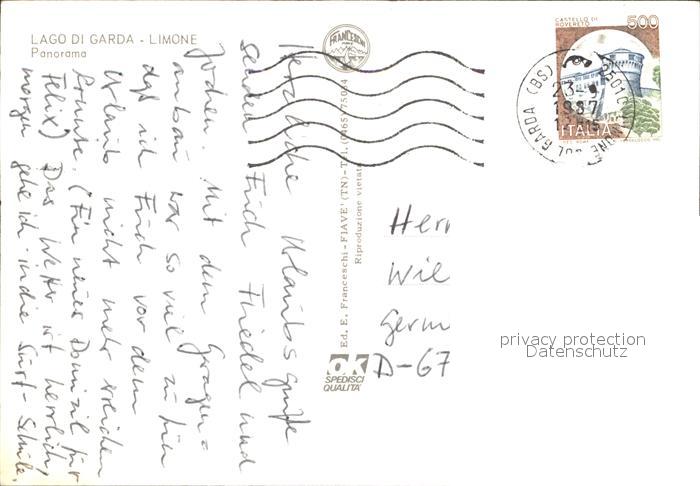 LAGO DI GARDA - LIMONE
Panorama
Herzliche Urlaubsgrüße
senden Euch Friedel und
Jochen. Mit dem Garagen=
anbau war so viel zu tun
daß ich Euch vor dem
Urlaub nicht mehr erreichen
konnte. (Ein neues Domizil für
Felix) Das Wetter ist herrlich,
morgen gehe ich in die Surf-Schule.
FRANCESCHI
Ed. E. Franceschi - FIAVE' (TN) - Tel. (0465) 75014
Riproduzione vietata
OK
SPEDISCI
QUALITA'
CASTELLO DI
ROVERETO
500
ITALIA
GARDA (BS)
1987
Herr
Wil
Germ
D-67
privacy protection
Datenschutz